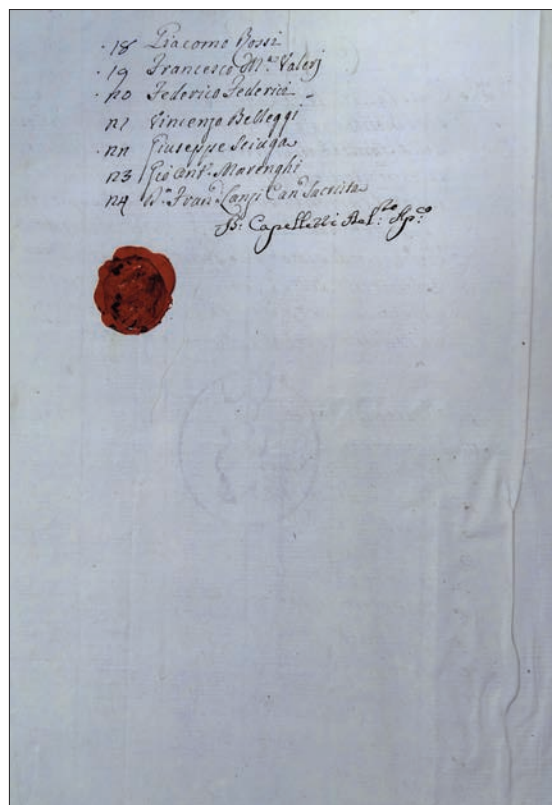 18 Giacomo Rossi
19 Francesco M.ª Valerj
20 Federico Federici
21 Vincenzo Belleggi
22 Giuseppe Sciuga
23 Gio Ant.º Marenghi
24 D.n Fran.º Lanzi Can.º Sacrista
Capelletti